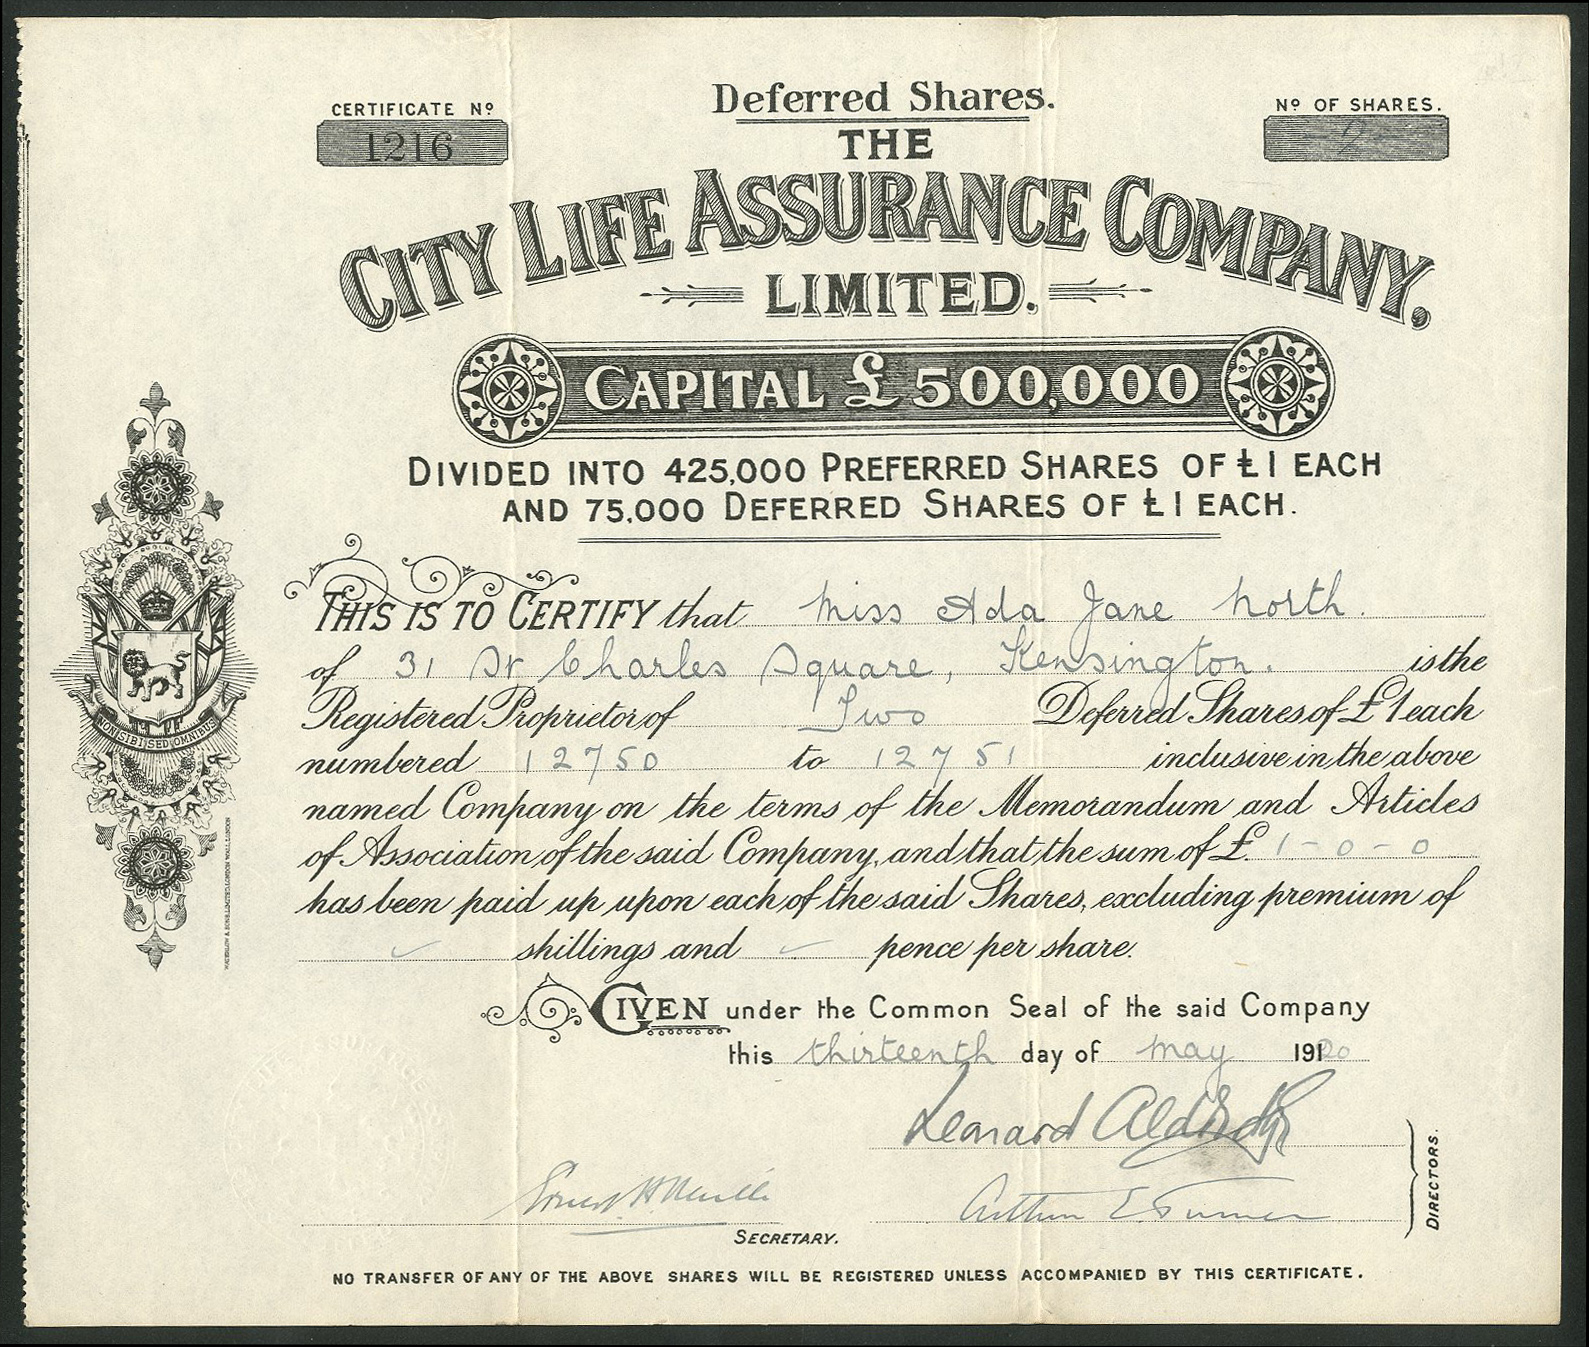 Deferred Shares.
CERTIFICATE No
1216
No OF SHARES.
2
THE
CITY LIFE ASSURANCE COMPANY,
LIMITED.
CAPITAL £500,000
DIVIDED INTO 425,000 PREFERRED SHARES OF £1 EACH
AND 75,000 DEFERRED SHARES OF £1 EACH.
THIS IS TO CERTIFY that Miss Ada Jane North.
of 31 St Charles Square, Kensington. is the
Registered Proprietor of Two Deferred Shares of £1 each
numbered 12750 to 12751 inclusive in the above
named Company on the terms of the Memorandum and Articles
of Association of the said Company, and that the sum of £ 1-0-0
has been paid up upon each of the said Shares, excluding premium of
shillings and pence per share.
GIVEN under the Common Seal of the said Company
this thirteenth day of May 1920
Leonard
Arthur E. Turner
DIRECTORS.
Ernest H.
SECRETARY.
NO TRANSFER OF ANY OF THE ABOVE SHARES WILL BE REGISTERED UNLESS ACCOMPANIED BY THIS CERTIFICATE.
NON SIBI SED OMNIBUS
WATERLOW & SONS LIMITED, LONDON WALL, LONDON